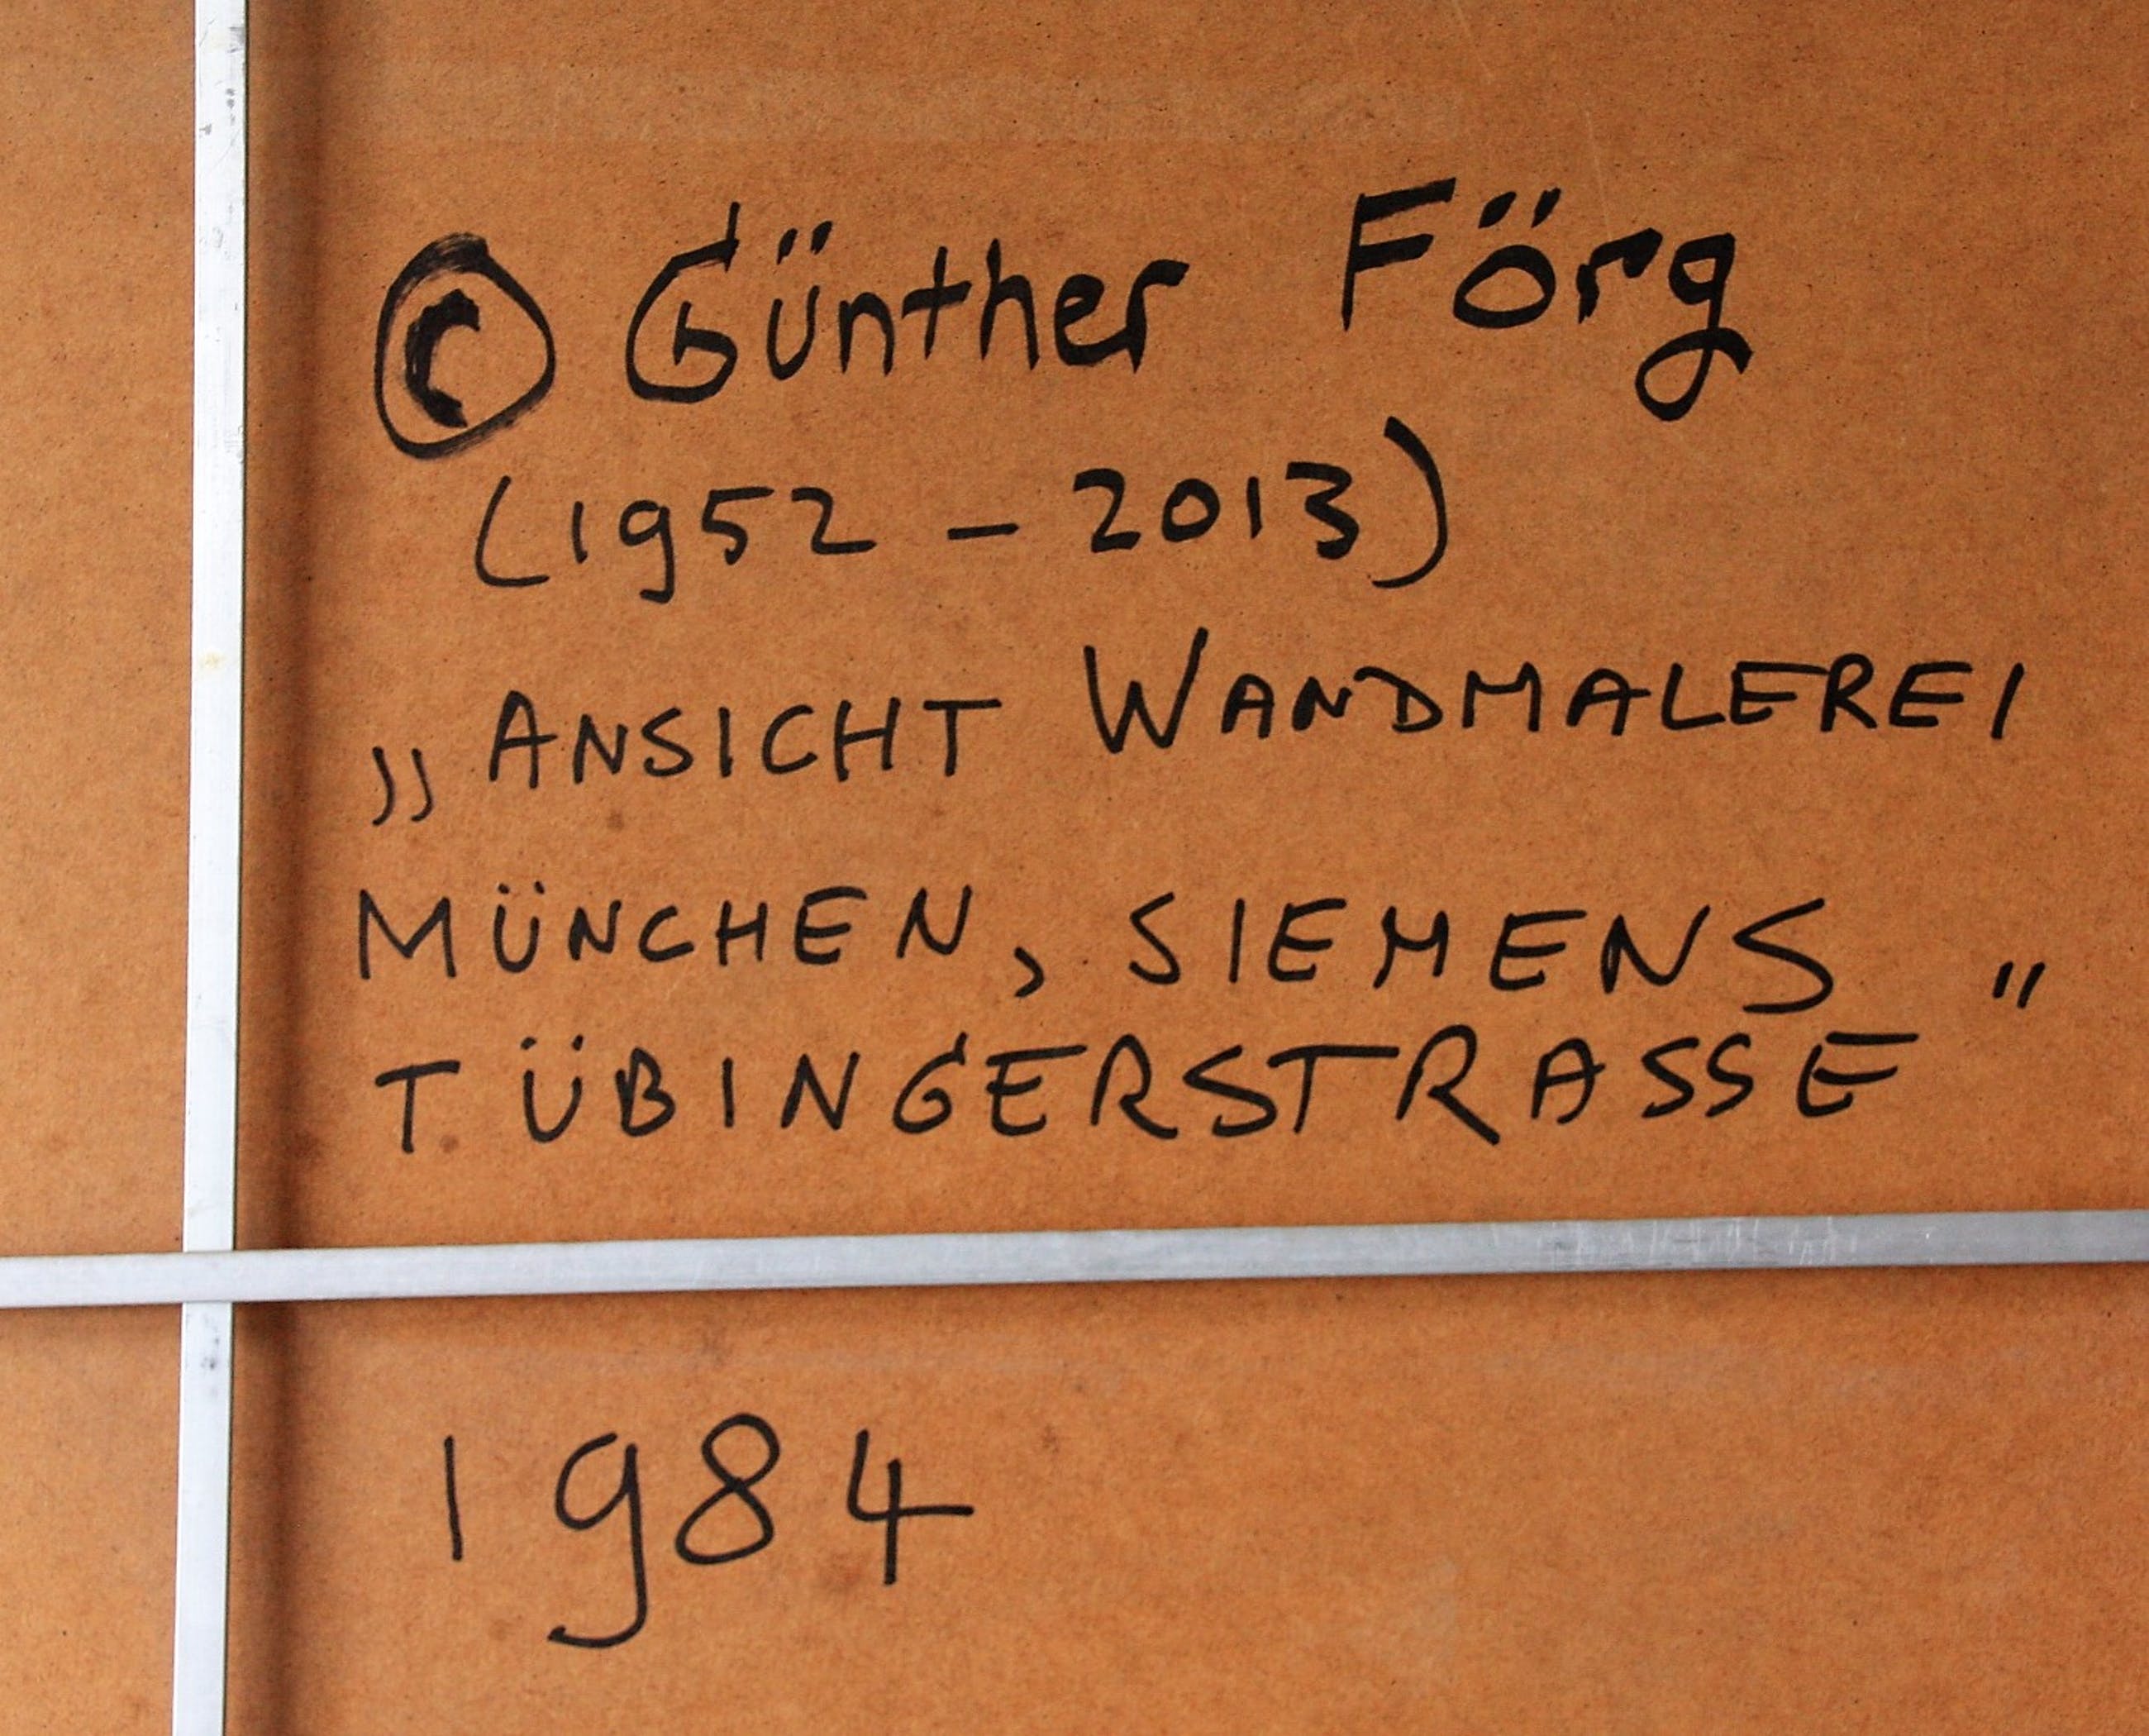 © Günther Förg
(1952 – 2013)
„ANSICHT WANDMALEREI
MÜNCHEN, SIEMENS "
TÜBINGERSTRASSE
1984